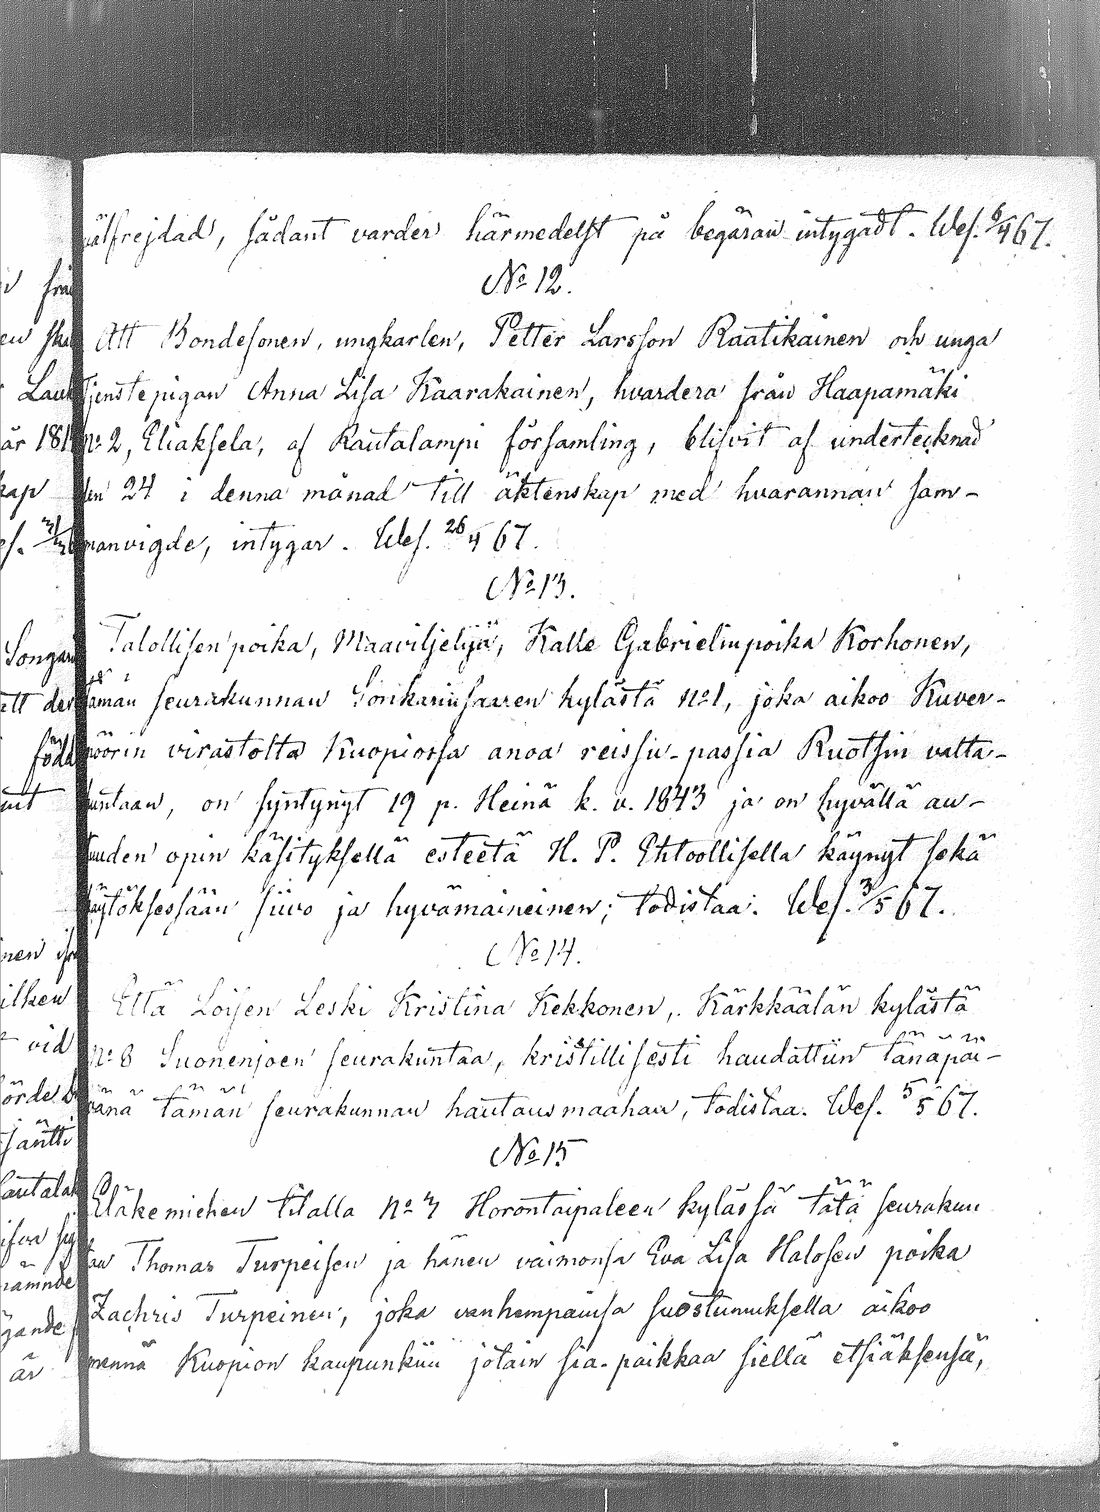 välfrejdad, sådant varder härmedelst på begäran intygadt. Wes. 6/4 67.
No 12.
Att Bondesonen, ungkarlen, Petter Larsson Raatikainen och unga
Tjenstepigan Anna Lisa Kaarakainen, hvardera från Haapamäki
No 2, Eliaksela, af Rautalampi församling, blifvit af undertecknad
den 24 i denna månad till äktenskap med hvarannan sam-
manvigde, intygar. Wes. 26/4 67.
No 13.
Talollisen poika, Maaviljeliä, Kalle Gabrielinpoika Korhonen,
tämän seurakunnan Sonkarinsaaren kylästä No 1, joka aikoo Kuver-
nöörin virastolta Kuopiossa anoa reissu-passia Ruotsin valta-
kuntaan, on syntynyt 19 p. Heinä k. v. 1843 ja on hyvällä au-
tuuden opin käsityksellä esteetä H. P. Ehtoollisella käynyt sekä
käytöksessään siivo ja hyvämaineinen; todistaa. Wes. 3/5 67.
No 14.
Että Loisen Leski Kristina Kekkonen, Kärkkäälän kylästä
No 8 Suonenjoen seurakuntaa, kristillisesti haudattiin tänäpäi-
vänä tämän seurakunnan hautausmaahan, todistaa. Wes. 5/5 67.
No 15
Eläkemiehen tilalla No 3 Horontaipaleen kylässä tätä seurakun
tan Thomas Turpeisen ja hänen vaimonsa Eva Lisa Halosen poika
Zachris Turpeinen, joka vanhempainsa suostumuksella aikoo
mennä Kuopion kaupunkiin jotain sia-paikkaa siellä etsiäksensä,